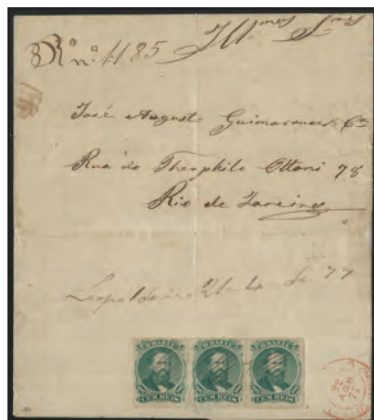 R n.º 1185 Illmos Snres
José Augusto Guimaraes & Ca
Rua do Theophilo Ottoni 78
Rio de Janeiro
Leopoldina 21 4 de 77
BRAZIL BRAZIL BRAZIL
CEM REIS CEM REIS CEM REIS